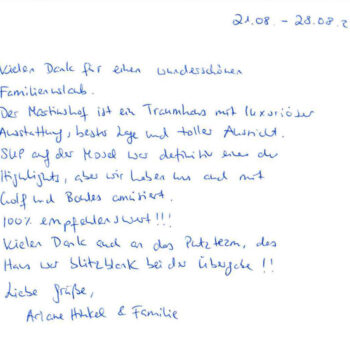 21.08. - 28.08.2
Vielen Dank für einen wunderschönen
Familienurlaub.
Der Martinshof ist ein Traumhaus mit luxuriöser
Ausstattung, beste Lage und toller Aussicht.
SUP auf der Mosel war definitiv eines der
Highlights, aber wir haben uns auch mit
Golf und Boules amüsiert.
100% empfehlenswert!!!
Vielen Dank auch an das Putzteam, das
Haus war blitzblank bei der Übergabe!!
Liebe Grüße,
Ariane Hinkel & Familie